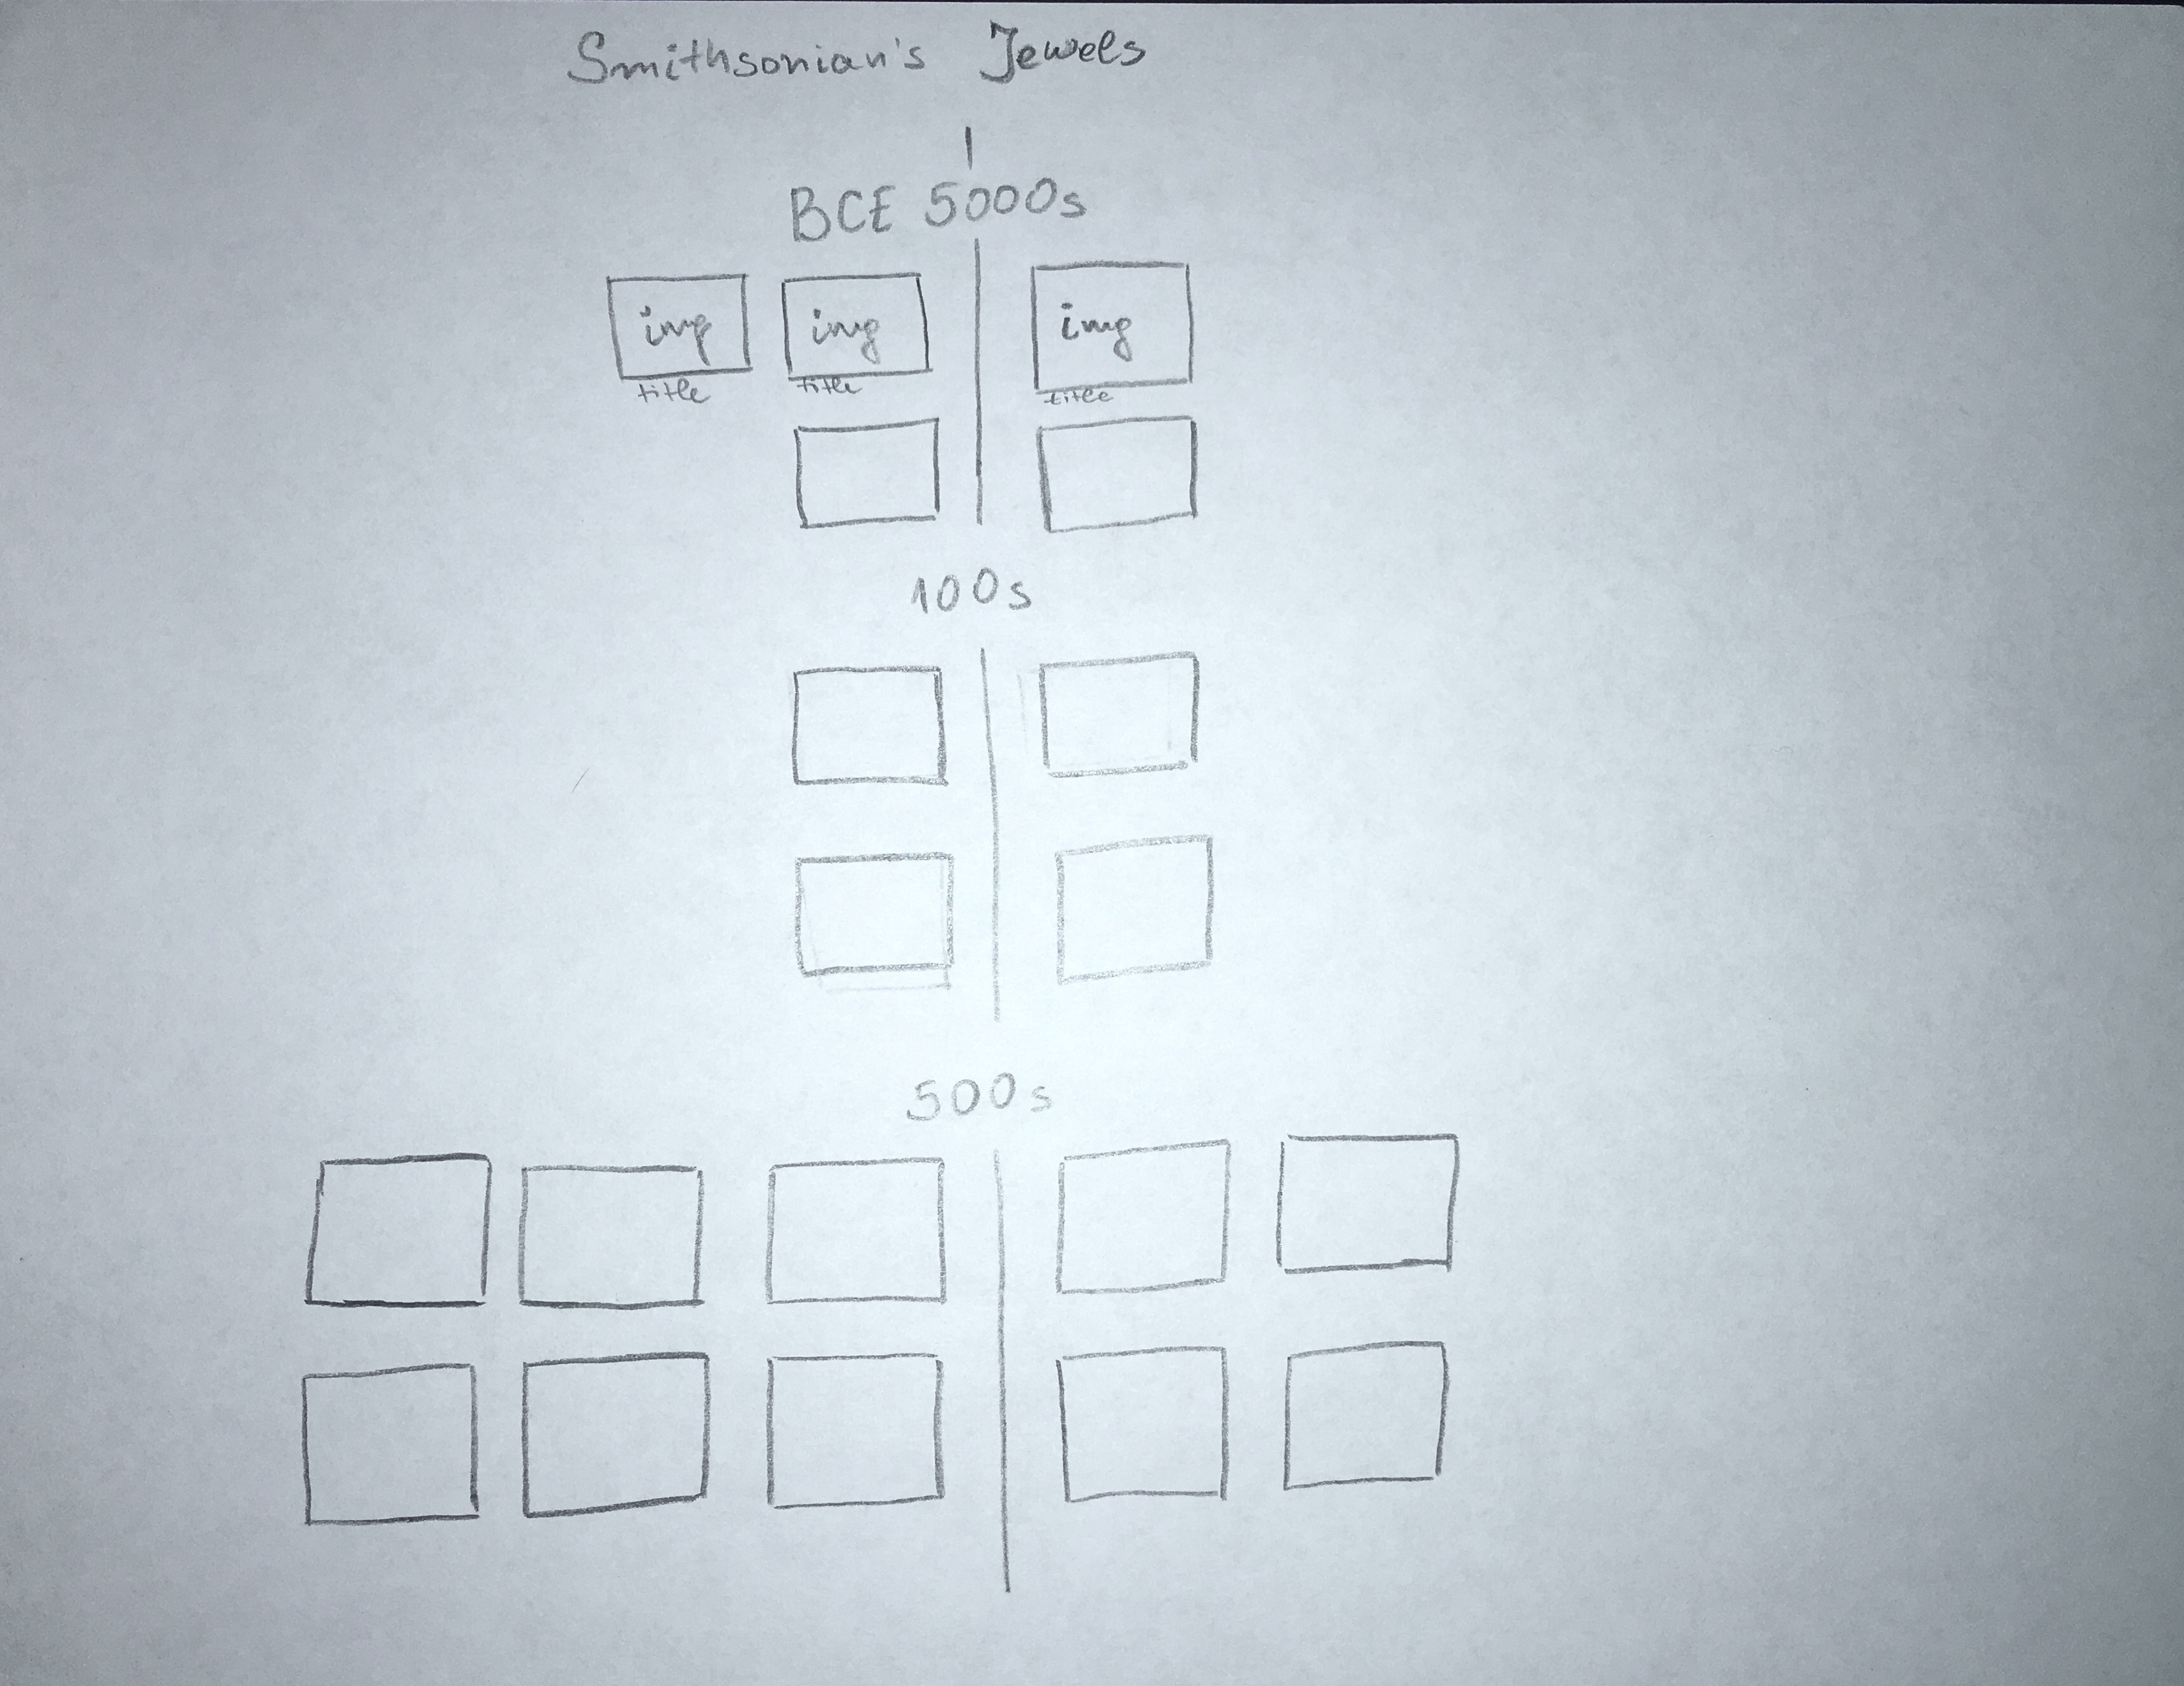 Smithsonian's Jewels
BCE 5000s
img img img
title title title
100s
500s